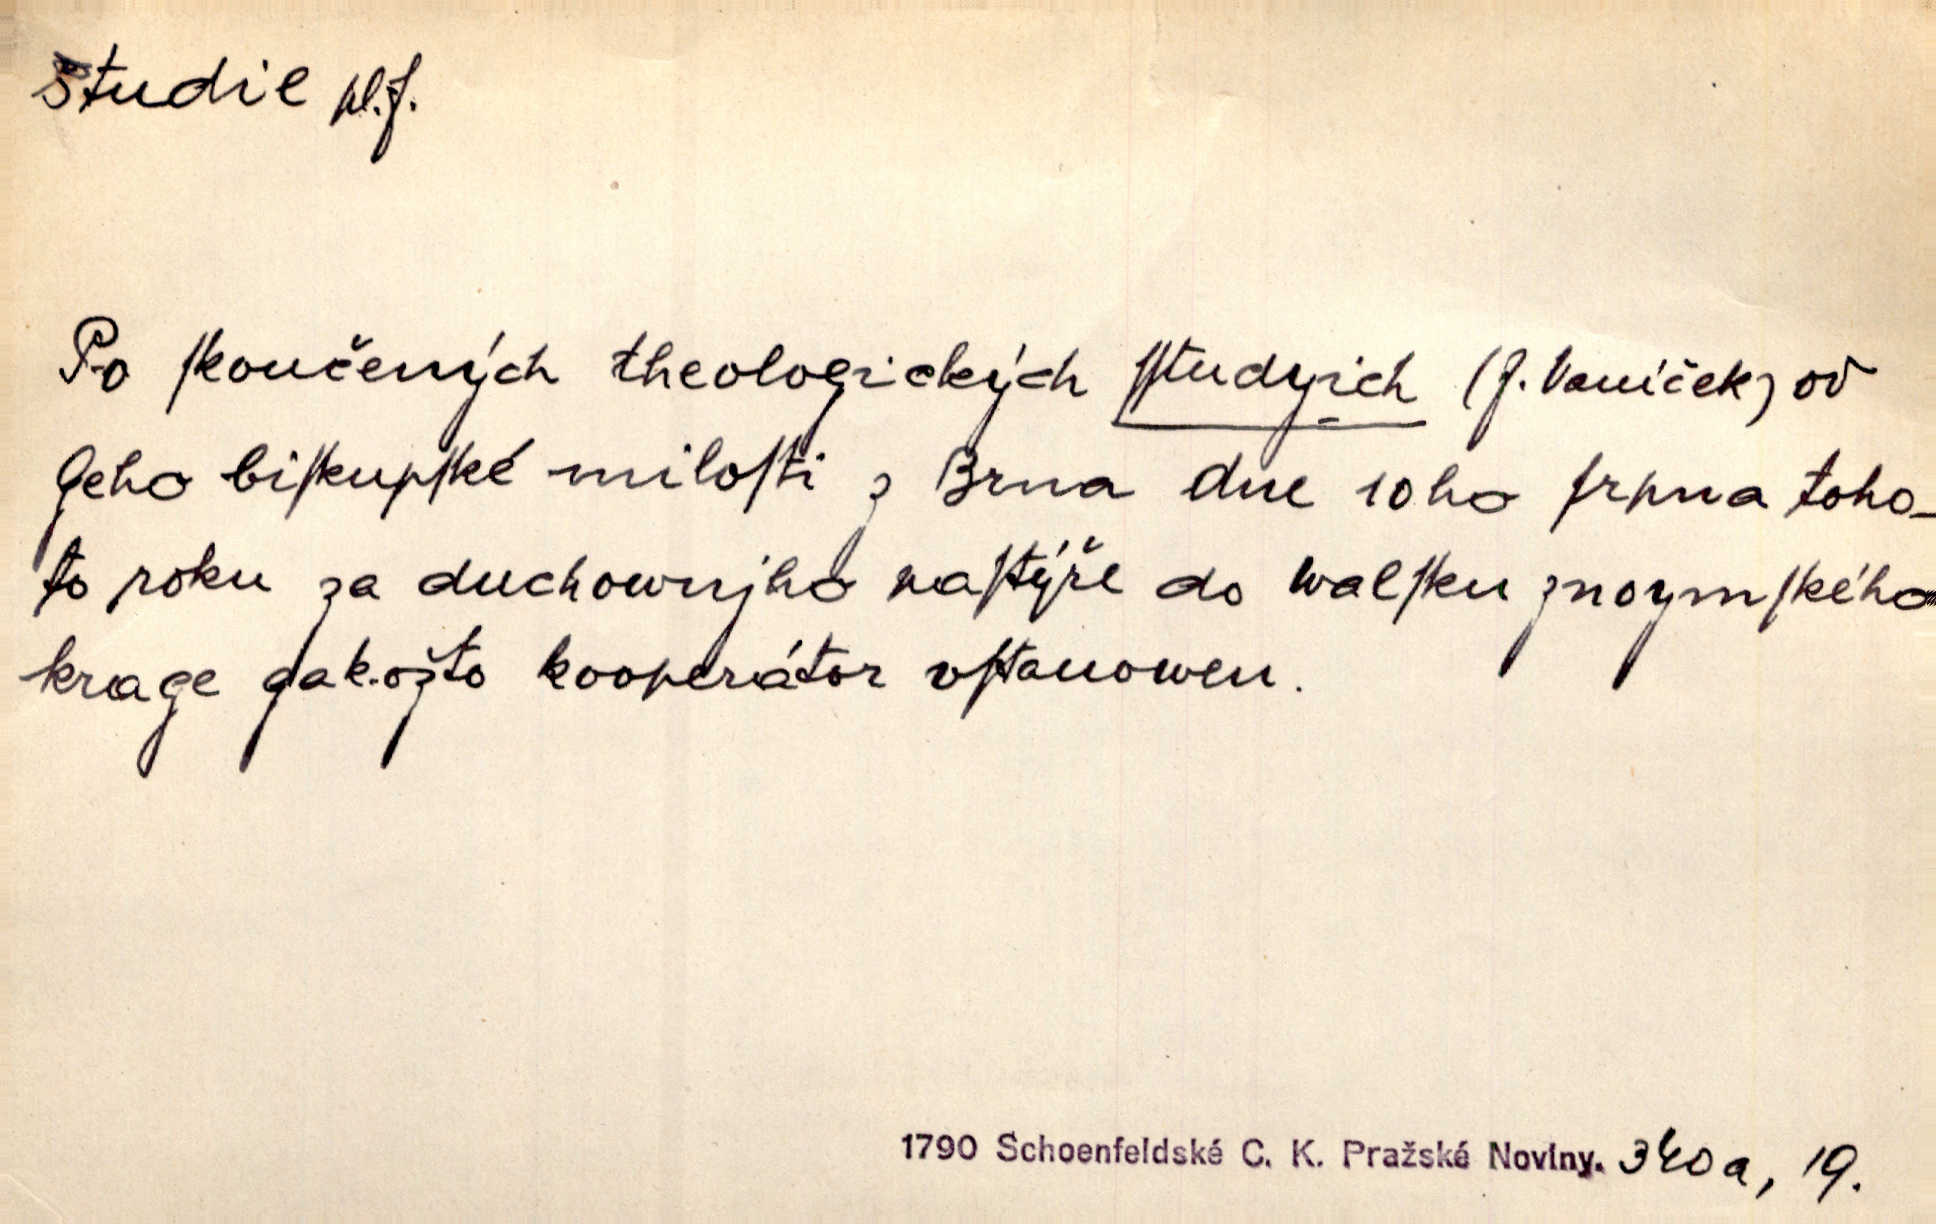 studie pl. f.
Po ſkončených theologických ſſtudyich (J. Vaníček) od
Geho biſkupſké miloſti z Brna dne 10ho ſrpna toho-
to roku za duchownjho paſtýře do Walſku znoymſkého
krage gakožto kooperátor vſtanowen.
1790 Schoenfeldské C. K. Pražské Noviny. 340a, 19.